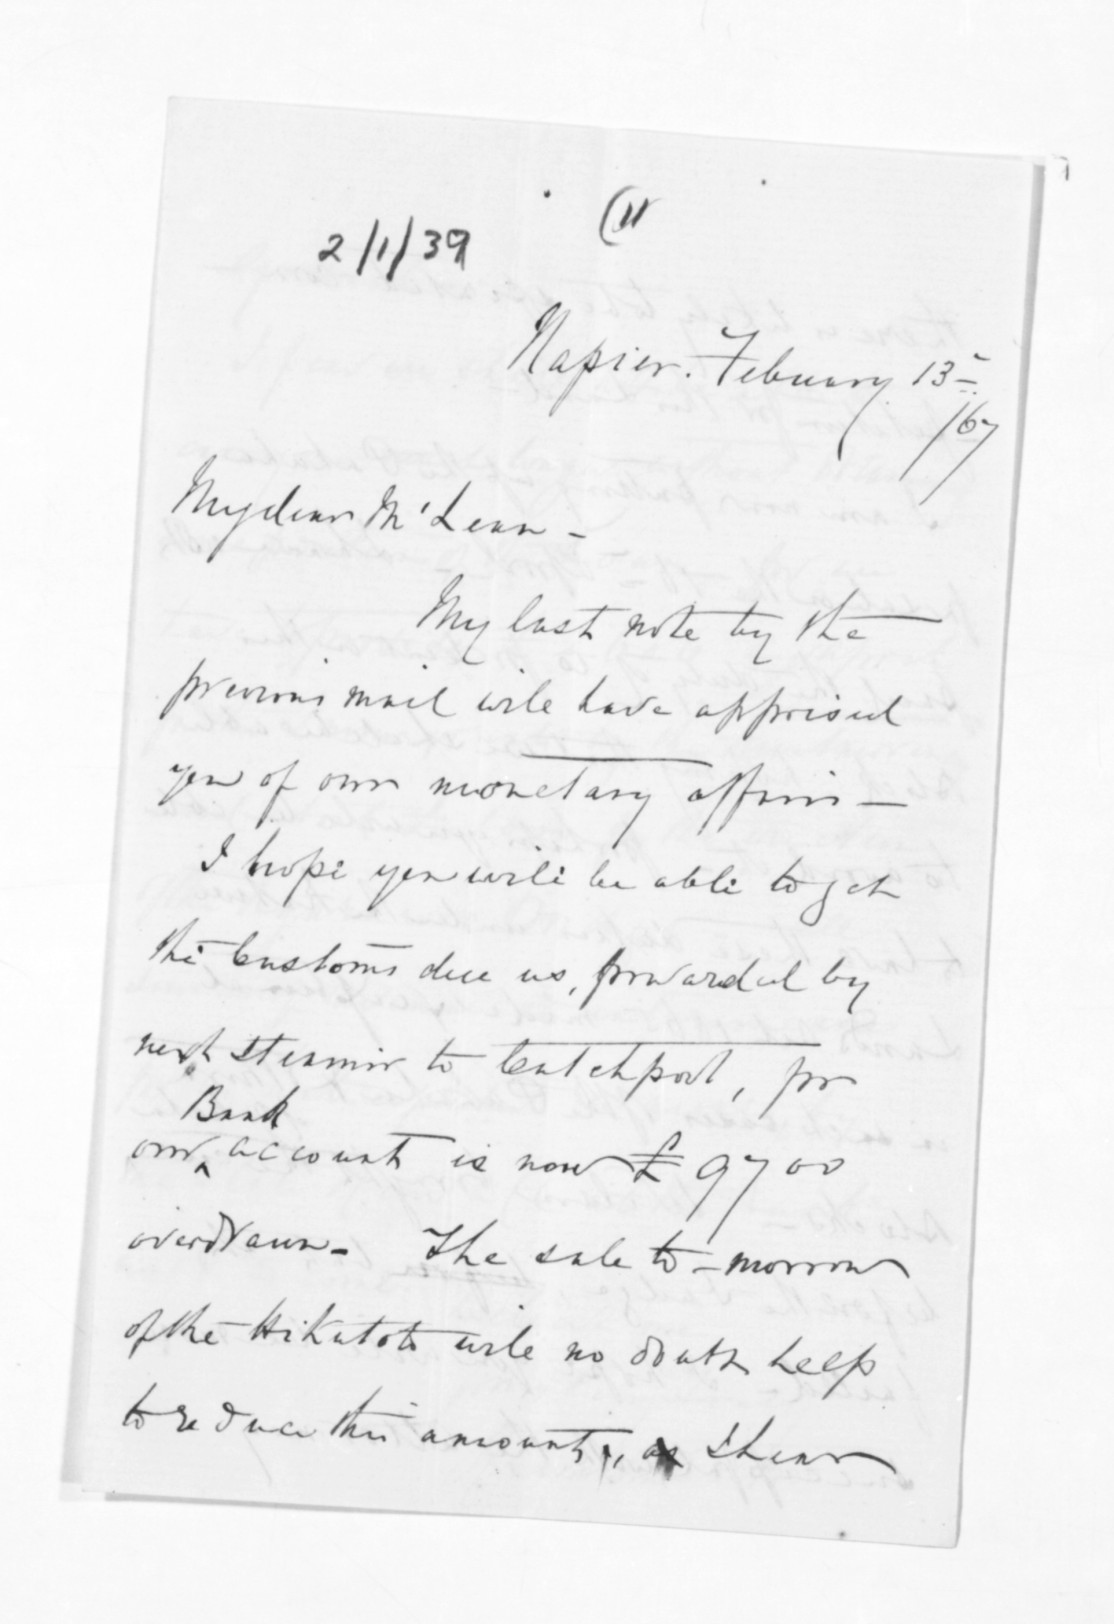 2/1/39
(11
Napier. February 13th
/67
My dear McLean -
My last note by the
previous mail will have apprised
you of our monetary affairs —
I hope you will be able to get
the Customs due us, forwarded by
next steamer to Catchpool, for
Bank
our ^ account is now £9700
overdrawn - The sale to-morrow
of the Hikutoto will no doubt help
to reduce this amount, as I hear